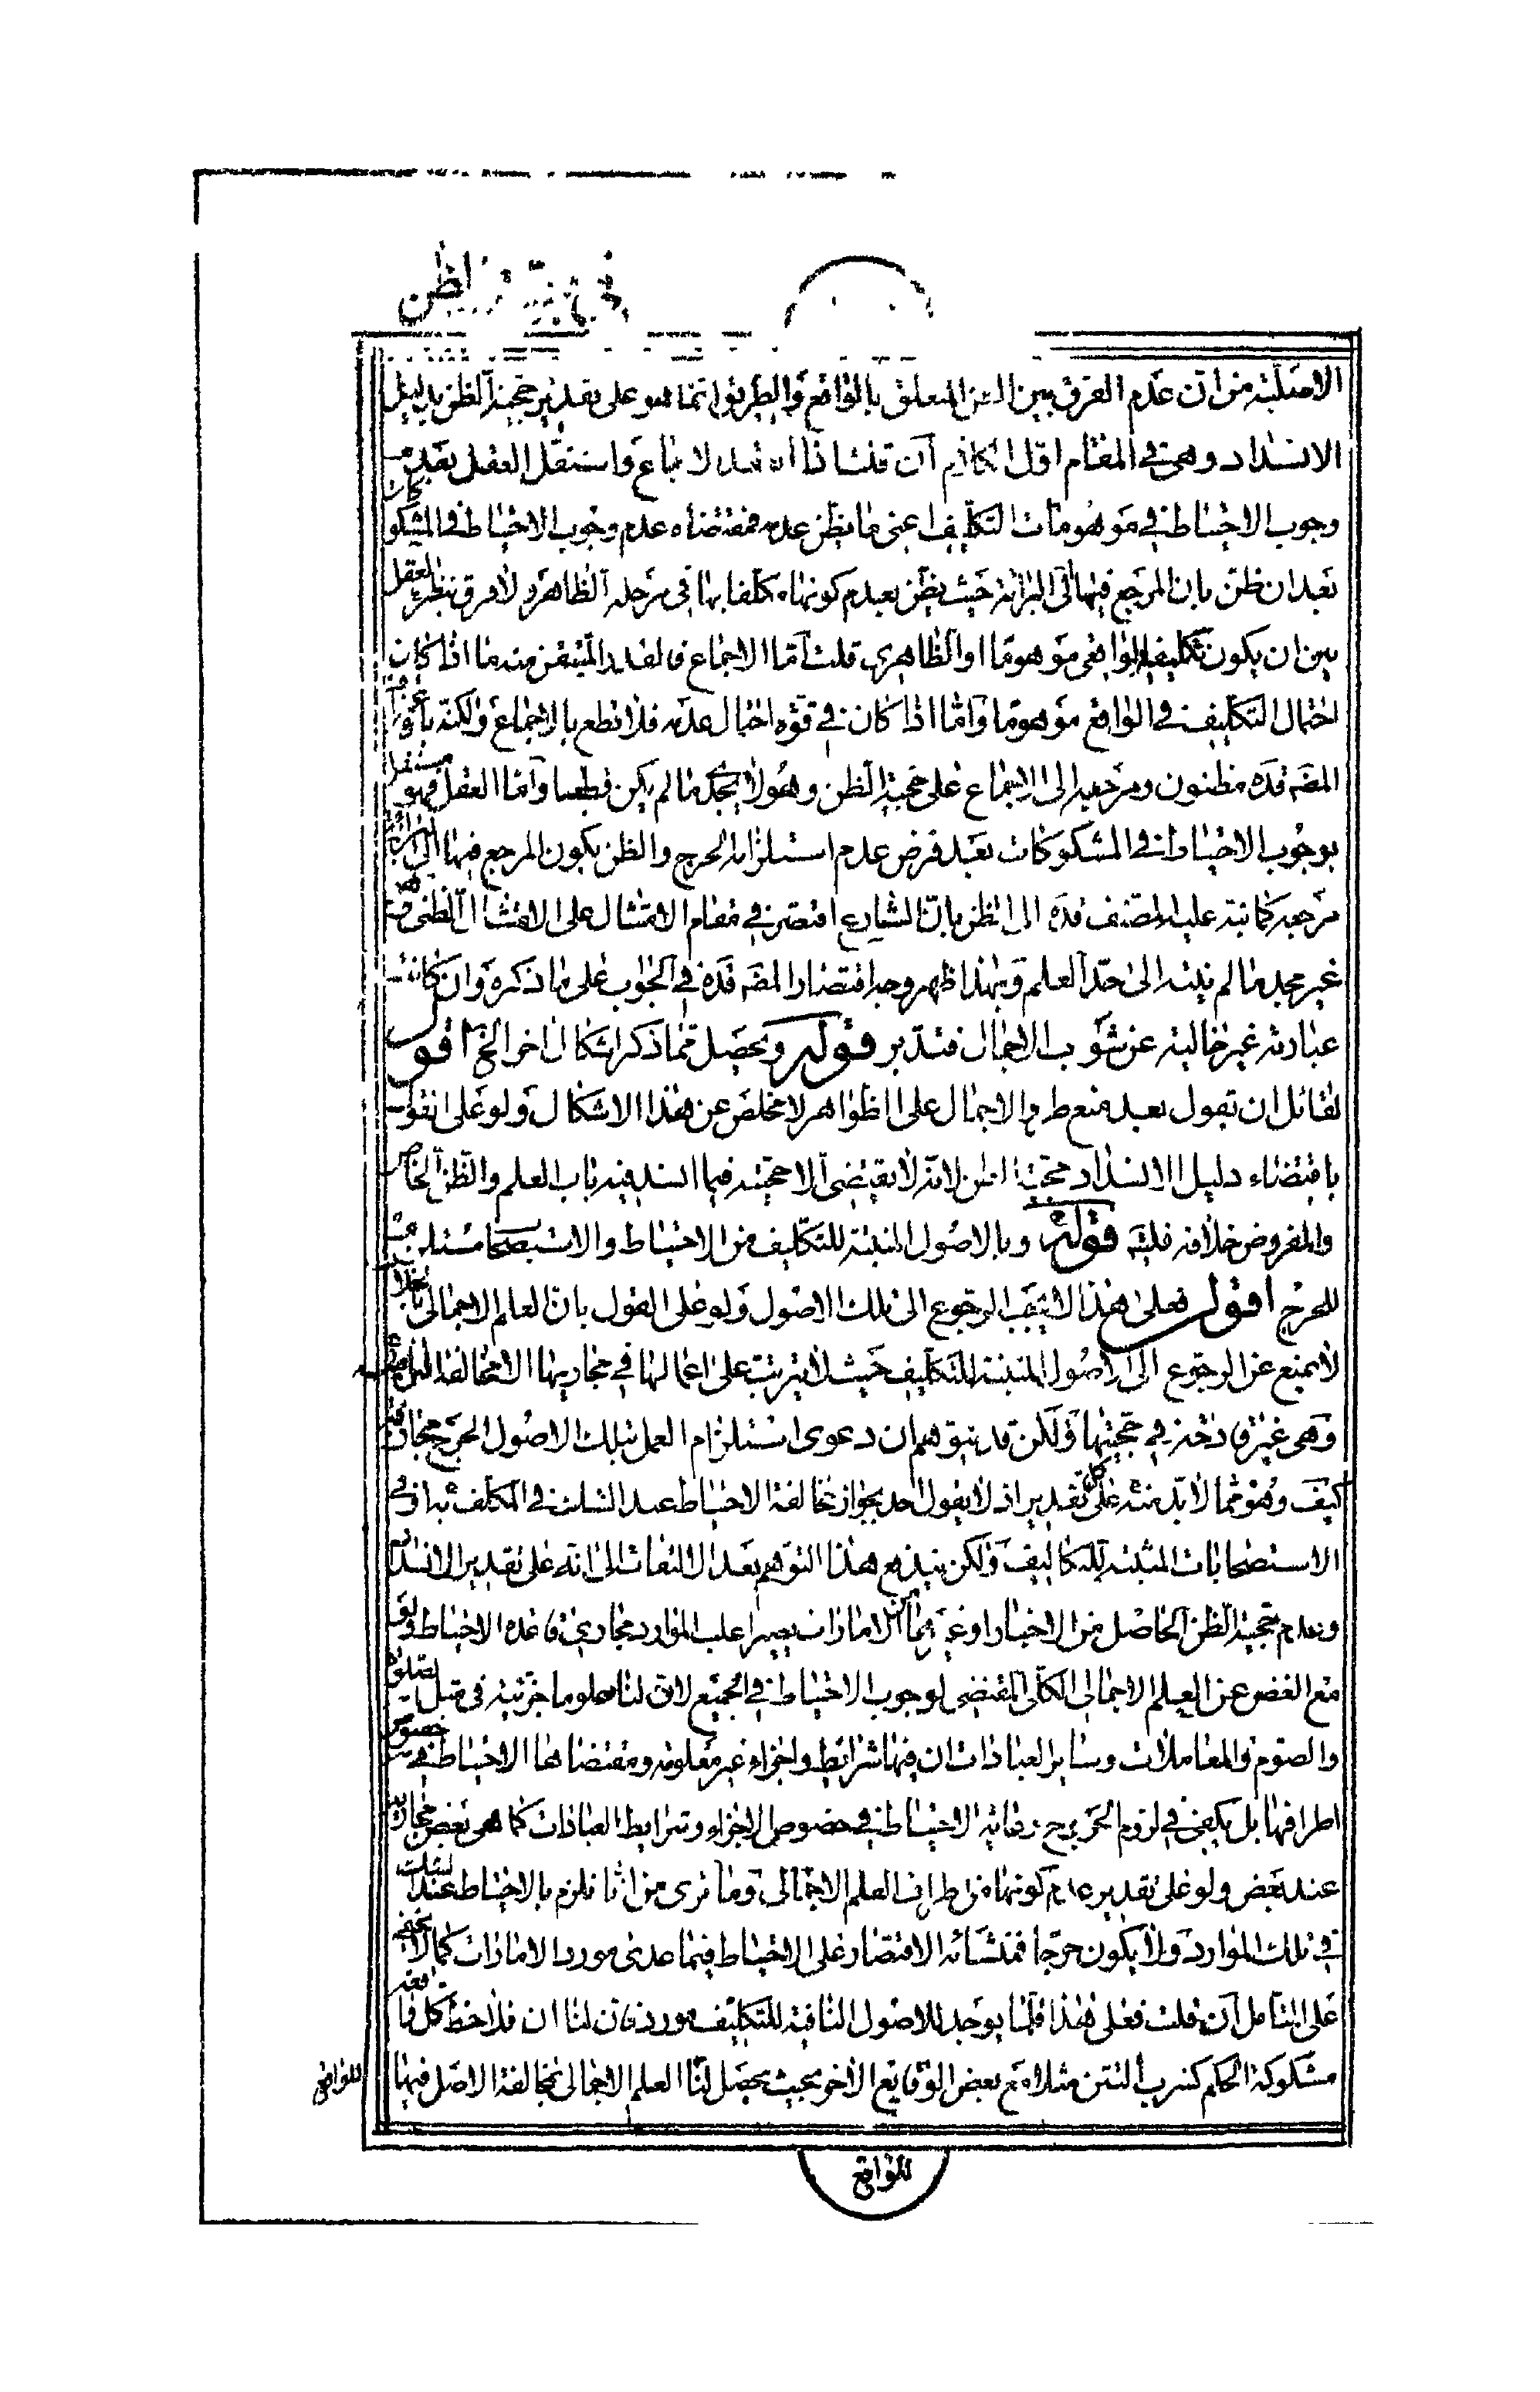 في حجية الظن
الاصلية من ان عدم الفرق بين الظن المتعلق بالواقع والطريق انما هو على تقدير حجية الظن بدليل
الانسداد وهى في المقام اول الكلام ان قلت اذا لا نباع واستقل العقل بعدم
وجوب الاحتياط في موهومات التكليف اعنى ما يظن عدمه فمقتضاه عدم وجوب الاحتياط في المشكوكات
بعد ان ظن بان المرجع فيها الى البرائة حيث يظن بعدم كونها مكلفا بها في مرحلة الظاهر ولا فرق بنظر العقل
بين ان يكون تكليفه الواقعى موهوما او الظاهرى قلت اما الاجماع فالقدر المتيقن منه ما اذا كان
احتمال التكليف في الواقع موهوما واما اذا كان في قوة احتمال عدمه فلا نقطع بالاجماع ولكنه باعتراف
المصَ قده مظنون ومرجعه الى الاجماع على حجية الظن وهو لا يجدى ما لم يكن قطعيا واما العقل فهو مستقل
بوجوب الاحتياط في المشكوكات بعد فرض عدم استلزامه الحرج والظن بكون المرجع فيها الى البرائة
مرجعه كما نبه عليه المصنف قده الى الظن بان الشارع اقتصر في مقام الامتثال على الامتثال الظنى وهو
غير مجد ما لم ينته الى حد العلم وبهذا ظهر وجه اقتصار المصَ قده في الجواب على ما ذكره وان كانت
عبارته غير خالية عن شوب الاجمال فتدبر قوله ويحصل مما ذكر اشكال اخر الخ اقول
لقائل ان يقول بعد منع طرو الاجمال على الظواهر لا مخلص عن هذا الاشكال ولو على القول
باقتضاء دليل الانسداد حجية الظن لانه لا يقتضى الا حجيته فيما انسد فيه باب العلم والظن الخاص
والمفروض خلافه فليت قوله وبالاصول المثبتة للتكليف من الاحتياط والاستصحاب مستلزمة
للحرج اقول فعلى هذا لا يجب الرجوع الى تلك الاصول ولو على القول بان العلم الاجمالى بخلافها
لا يمنع عن الرجوع الى الاصول المثبتة للتكليف حيث لا يترتب على اعمالها في مجاريها الا مخالفة التزامية
وهى غير قادحة في حجيتها ولكن قد يتوهم ان دعوى استلزام العمل بتلك الاصول الحرج مجازفة
كيف وهو مما لا بد منه على كل تقدير اذ لا يقول احد بجواز مخالفة الاحتياط عند الشك في المكلف به او في
الاستصحابات المثبتة للتكاليف ولكن يندفع هذا التوهم بعد الالتفات الى انه على تقدير الانسداد
وعدم حجية الظن الحاصل من الاخبار او غيرها من الامارات يصير اغلب الموارد مجارى قاعدة الاحتياط ولو
مع الغض عن العلم الاجمالى الكلى المقتضى لوجوب الاحتياط في الجميع لان لنا علوما جزئية في مثل الصلوة
والصوم والمعاملات وسائر العبادات ان فيها شرائط واجزاء غير معلومة ومقتضاها الاحتياط في خصوص
اطرافها بل يكفى في لزوم الحرج رعاية الاحتياط في خصوص الاجزاء وشرايط العبادات كما هى بعض مجاريه
عند بعض ولو على تقدير عدم كونها من اطراف العلم الاجمالى وما ترى من انا نلزم بالاحتياط عند الشك
في تلك الموارد ولا يكون حرجا فمنشائه الاقتصار على الاحتياط فيما عدى مورد الامارات كما لا يخفى
على المتامل ان قلت فعلى هذا قلما يوجد للاصول النافية للتكليف مورد فان لنا ان نلاحظ كل واقعة
مشكوكة الحكم كشرب التتن مثلا مع بعض الوقايع الاخر بحيث يحصل لنا العلم الاجمالى بمخالفة الاصل فيها
للواقع
للواقع